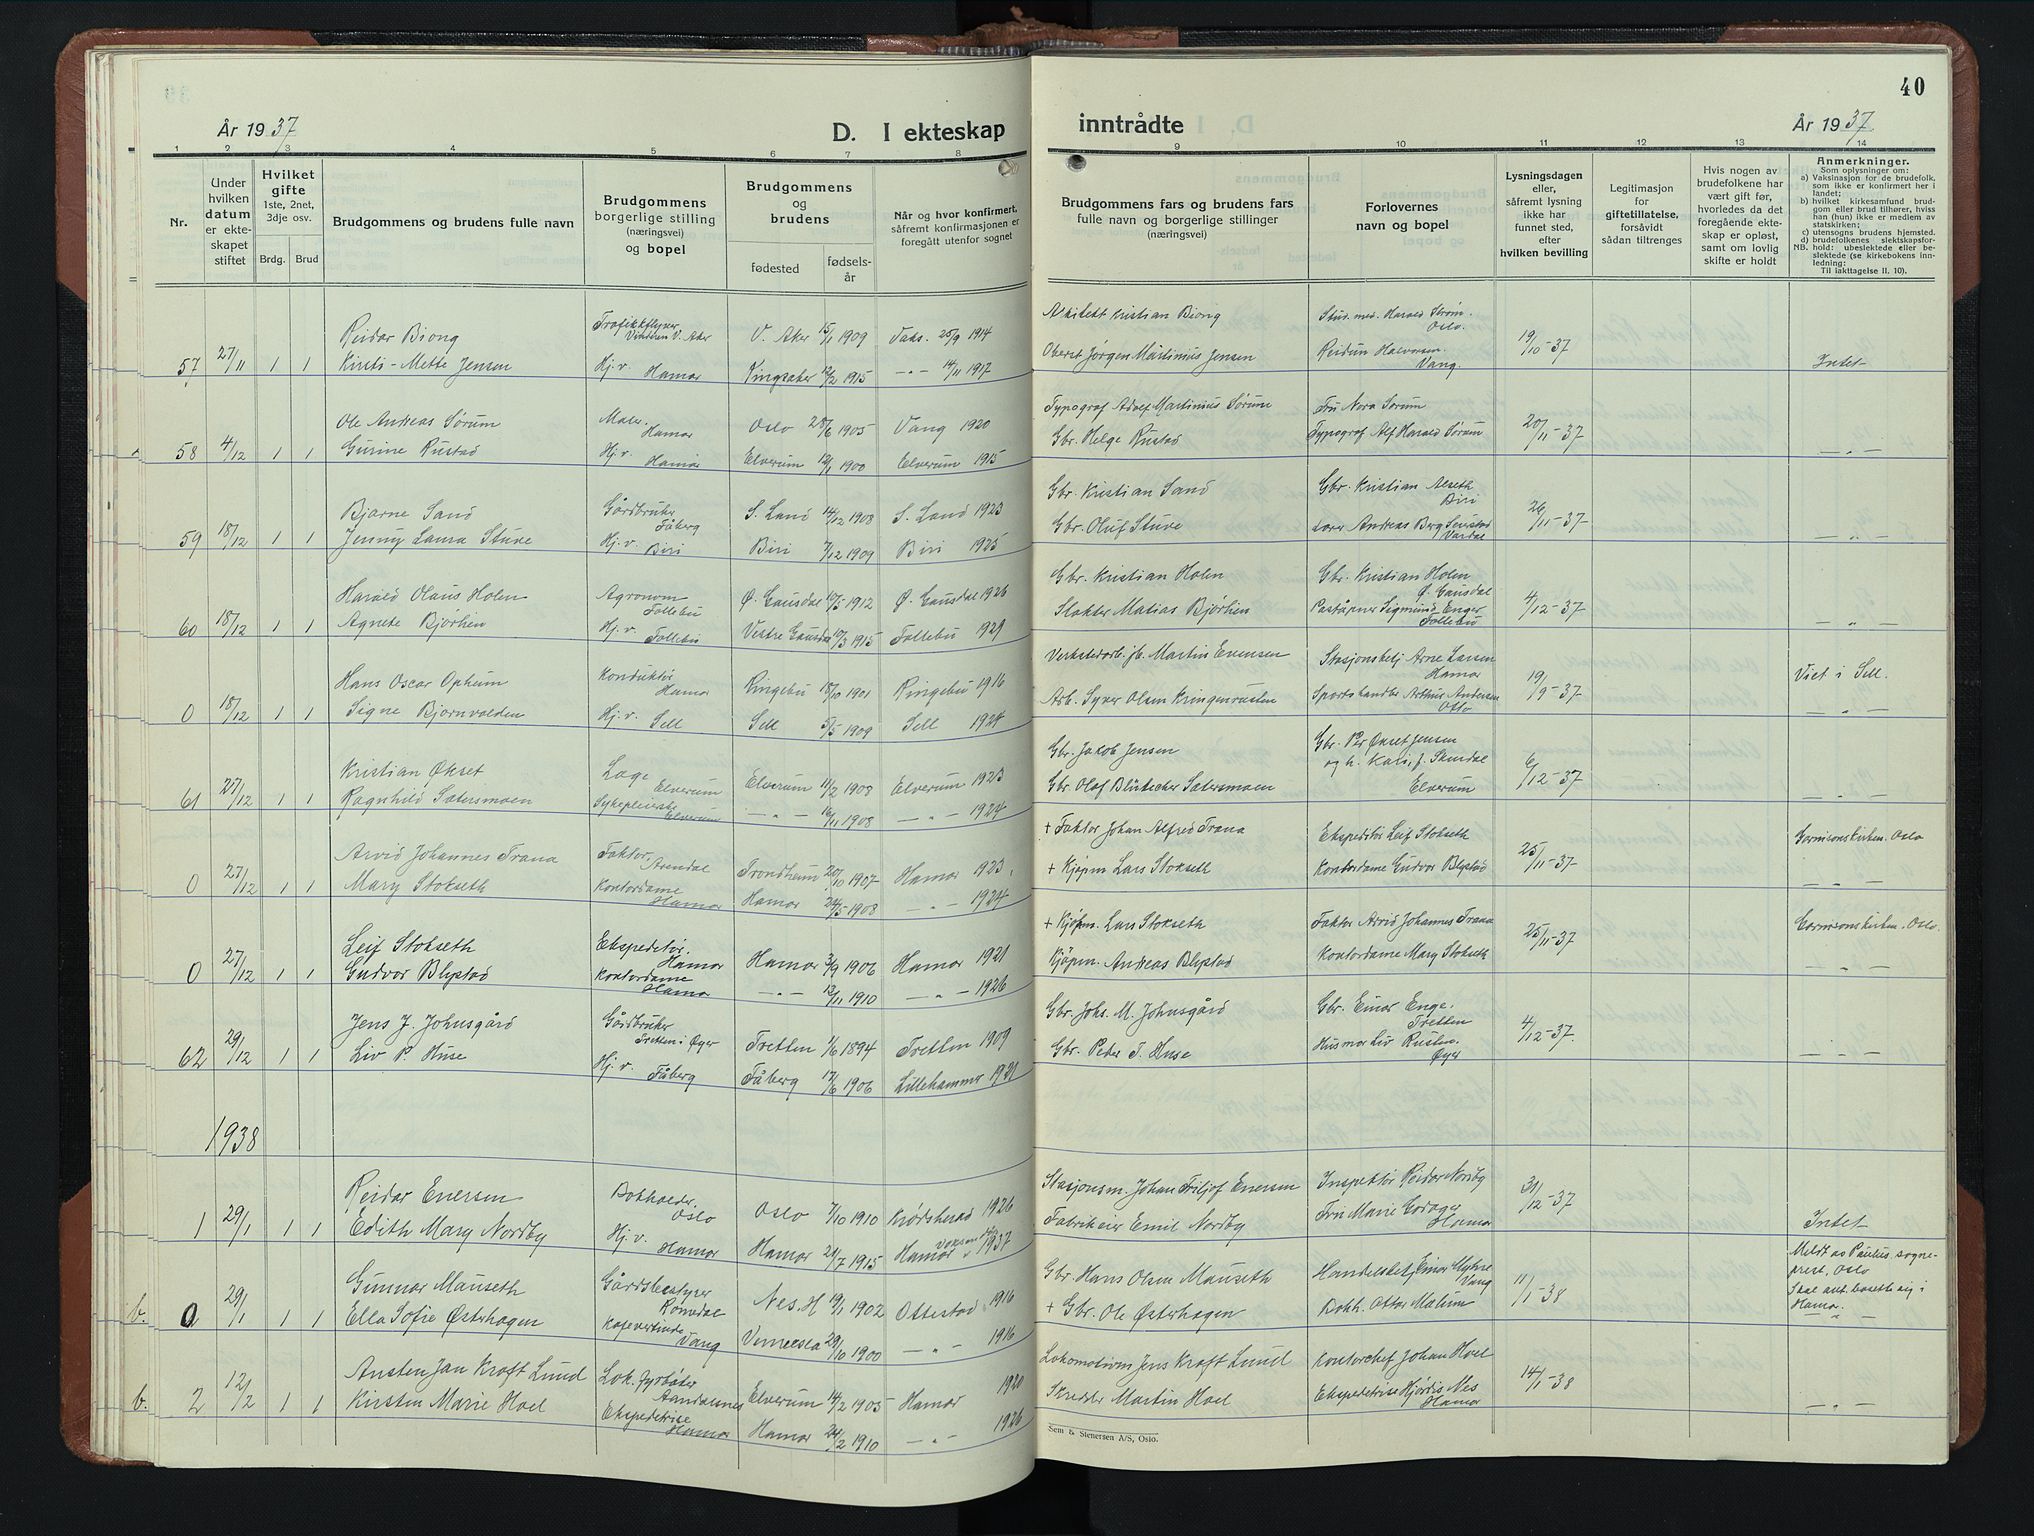 40
År 1937
D. I ekteskap
inntrådte
År 1937
1 2 3 4 5 6 7 8 9 10 11 12 13 14
Nr.
Under hvilken datum er ekteskapet stiftet
Hvilket gifte 1ste, 2net, 3dje osv.
Brdg. Brud
Brudgommens og brudens fulle navn
Brudgommens borgerlige stilling (næringsvei) og bopel
Brudgommens og brudens
fødested
fødselsår
Når og hvor konfirmert, såfremt konfirmasjonen er foregått utenfor sognet
Brudgommens fars og brudens fars fulle navn og borgerlige stillinger (næringsvei)
Forlovernes navn og bopel
Lysningsdagen eller, såfremt lysning ikke har funnet sted, efter hvilken bevilling
Legitimasjon for giftetillatelse, forsåvidt sådan tiltrenges
Hvis nogen av brudefolkene har vært gift før, hvorledes da det foregående ekteskap er opløst, samt om lovlig skifte er holdt
Anmerkninger.
Som oplysninger om:
a) Vaksinasjon for de brudefolk, som ikke er konfirmert her i landet;
b) hvilket kirkesamfund brudgom eller brud tilhører, hviss han (hun) ikke er medlem av statskirken;
c) utensogns brudens hjemsted.
d) brudefolkenes slektskapsforhold: ubeslektede eller beslektede (se kirkebokens innledning:
NB. Til iakttagelse II. 10).
57 27/11 1 1 Reidar Biong Trafikkflyver Vinderen V. Aker V. Aker 15/1 1909 25/9 1914 Kristian Biong Stud. med. Harald Strøm. Oslo. 19/10-37
Kirsti-Mette Jensen Hj. v. Hamar 12/2 1915 -"- 14/11 1917 Oberst Jørgen Martinius Jensen Reidun Halvorsen. Vang. Intet
58 4/12 1 1 Ole Andreas Sørum Maler. Hamar Oslo 28/6 1905 Vang 1920 Typograf Adolf Martinius Sørum Fru Nora Sørum 20/11-37
Gurine Rustad Hj. v. Hamar Elverum 12/1 1900 Elverum 1915 Gbr. Helge Rustad Typograf Alf Harald Sørum -"-
59 18/12 1 1 Bjarne Sand Gårdbruker Fåberg S. Land 14/12 1908 S. Land 1923 Gbr. Kristian Sand Gbr. Kristian Alseth Biri 26/11-37
Jenny Laura Stuve Hj. v. Biri Biri 7/12 1909 Biri 1925 Gbr. Oluf Stuve Andreas Berg Vardal -"-
60 18/12 1 1 Harald Olaus Holen Agronom Follebu Ø. Gausdal 10/5 1912 Ø. Gausdal 1926 Gbr. Kristian Holen Gbr. Kristian Holen Ø. Gausdal 4/12-37
Agnete Bjørhen Hj. v. Follebu Vestre Gausdal 10/3 1915 Follebu 1929 Slakter Matias Bjørhen Sigmund Enger Follebu -"-
0 18/12 1 1 Hans Oscar Opheim Konduktør Hamar Ringebu 18/10 1901 Ringebu 1916 Verkstedarb. jb. Martin Evensen Stasjonsbetj Arne Larsen Hamar 19/9-37 Viet i Sell.
Signe Bjørnvolden Hj. v. Sell Sell 5/5 1909 Sell 1924 Arb. Syver Olsen Kringenrusten Sportshandler Arthur Andersen Otto -"-
61 27/12 1 1 Kristian Økset Læge Elverum Elverum 11/2 1908 Elverum 1923 Gbr. Jakob Jensen Gbr. Per Økset Jensen 6/12-37
Ragnhild Sætersmoen Sykepleierske Elverum -"- 16/11 1908 -"- 1924 Gbr. Olaf Blütecher Sætersmoen og h. Elverum -"-
0 27/12 1 1 Arvid Johannes Trana Faktor, Arendal Trondheim 20/10 1907 Hamar 1923 + Faktor Johan Alfred Trana Ekspeditør Leif Stokseth 25/11-37 Garnisonskirken. Oslo
Mary Stokseth Kontordame Hamar Hamar 24/5 1908 -"- 1924 + Kjøpm Lars Stokseth Kontordame Gudvor Blystad -"-
0 27/12 1 1 Leif Stokseth Ekspeditør. Hamar Hamar 3/9 1906 Hamar 1921 + Kjøpm. Lars Stokseth Faktor Arvid Johannes Trana 25/11-37 Garnisonskirken. Oslo.
Gudvor Blystad Kontordame Hamar -"- 13/11 1910 -"- 1926 Kjøpm. Andreas Blystad Kontordame Mary Stokseth -"-
62 29/12 1 1 Jens J. Johnsgård Gårdbruker Tretten i Øyer Tretten 1/6 1894 Tretten 1909 Gbr. Johs. M. Johnsgård Gbr. Einar Enge. Tretten 4/12-37.
Liv P. Huse Hj. v. Fåberg Fåberg 17/6 1906 Lillehammer 1921 Gbr. Peder T. Huse Husmor Liv Rusten. Øyer -"-
1938
1 29/1 1 1 Reidar Enersen Bokholder. Oslo Oslo 7/10 1910 Krødsherad 1926 Stasjonsm. Johan Fritjof Enersen Inspektør Reidar Nordby 31/12-37
Edith Mary Nordby Hj. v. Hamar Hamar 21/7 1915 Hamar voksen 1937 Fabrikeier Emil Nordby Fru Marie Hamar Intet
b. 0 29/1 1 1 Gunnar Mauseth Gårdsbestyrer Romedal Nes. H 19/1 1902 Ottestad 1916 Gbr. Hans Olsen Mauseth Handelsbetj. Einar Myhre Vang 11/1-38 Meldt av Paulus sogneprest, Oslo
Ella Sofie Østerhagen Vang 29/10 1900 -"- 1916 + Gbr. Ole Østerhagen Bokh. Ottar Mælum Skal ant. bosette sig i Hamar. -"-
b. 2 12/2 1 1 Austen Jan Kraft Lund Lok. fyrbøter Aandalsnes Elverum 14/2 1905 Hamar 1920 Lokomotivm Jens Kraft Lund Kontorchef Johan Hoel 14/1-38
Kirsten Marie Hoel Ekspeditrise Hamar Hamar 24/2 1910 -"- 1926 Skredder Martin Hoel Ekspeditrise Hjørdis Nes Hamar -"-
Sem & Stenersen A/S, Oslo.